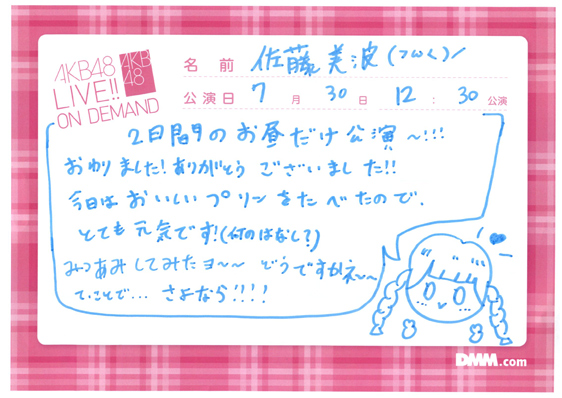 AKB48
LIVE!!
ON DEMAND
AKB
48
名前 佐藤美波(つんく)/
公演日 7月30日 12:30公演
2日間のお昼だけ公演〜!!!
おわりました!ありがとうございました!!
今日はおいしいプリンをたべたので、
とても元気です!(何のはなし?)
みつあみしてみたヨ〜〜 どうですかネ〜〜
てことで… さよなら!!!!
DMM.com